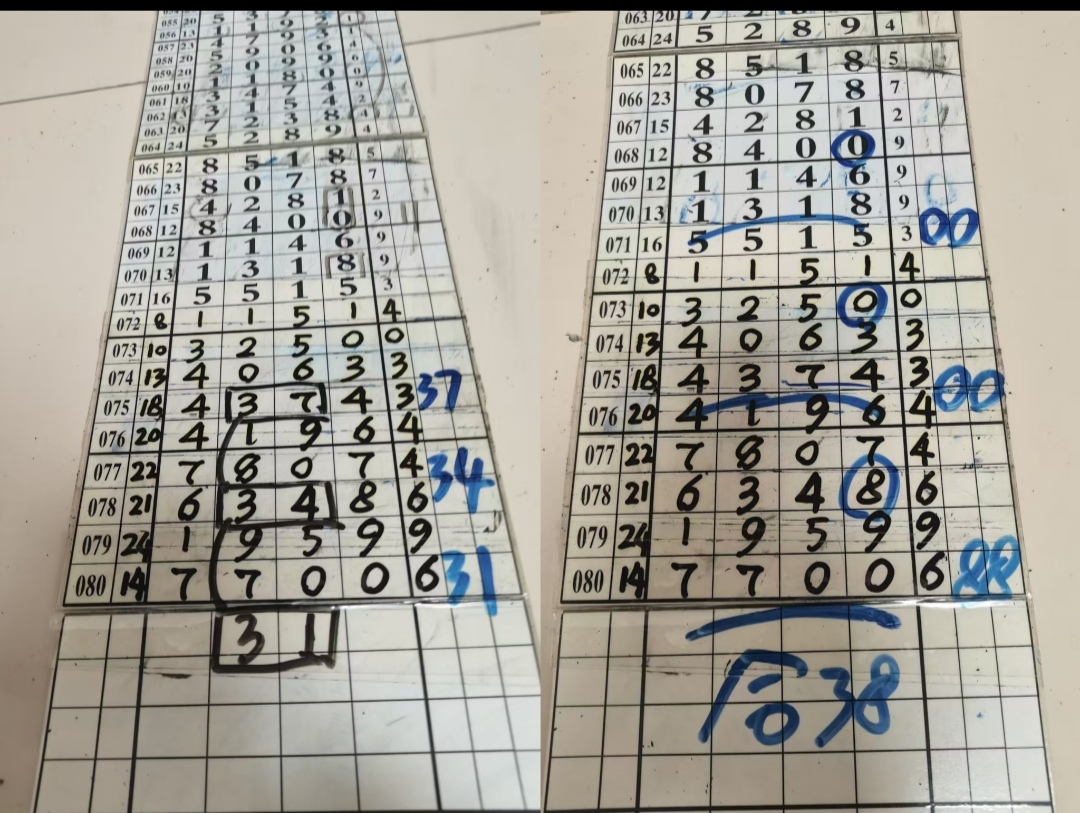 064 24 5 2 8 9 4
065 22 8 5 1 8 5
066 23 8 0 7 8 7
067 15 4 2 8 1 2
068 12 8 4 0 0 9
069 12 1 1 4 6 9
070 13 1 3 1 8 9
071 16 5 5 1 5 3
072 8 1 1 5 1 4
073 10 3 2 5 0 0
074 13 4 0 6 3 3
075 18 4 3 7 4 3 37
076 20 4 1 9 6 4
077 22 7 8 0 7 4
078 21 6 3 4 8 6 34
079 24 1 9 5 9 9
080 14 7 7 0 0 6 31
3 1
063 20
064 24 5 2 8 9 4
065 22 8 5 1 8 5
066 23 8 0 7 8 7
067 15 4 2 8 1 2
068 12 8 4 0 0 9
069 12 1 1 4 6 9
070 13 1 3 1 8 9
071 16 5 5 1 5 3 00
072 8 1 1 5 1 4
073 10 3 2 5 0 0
074 13 4 0 6 3 3
075 18 4 3 7 4 3 00
076 20 4 1 9 6 4
077 22 7 8 0 7 4
078 21 6 3 4 8 6
079 24 1 9 5 9 9
080 14 7 7 0 0 6 88
后38